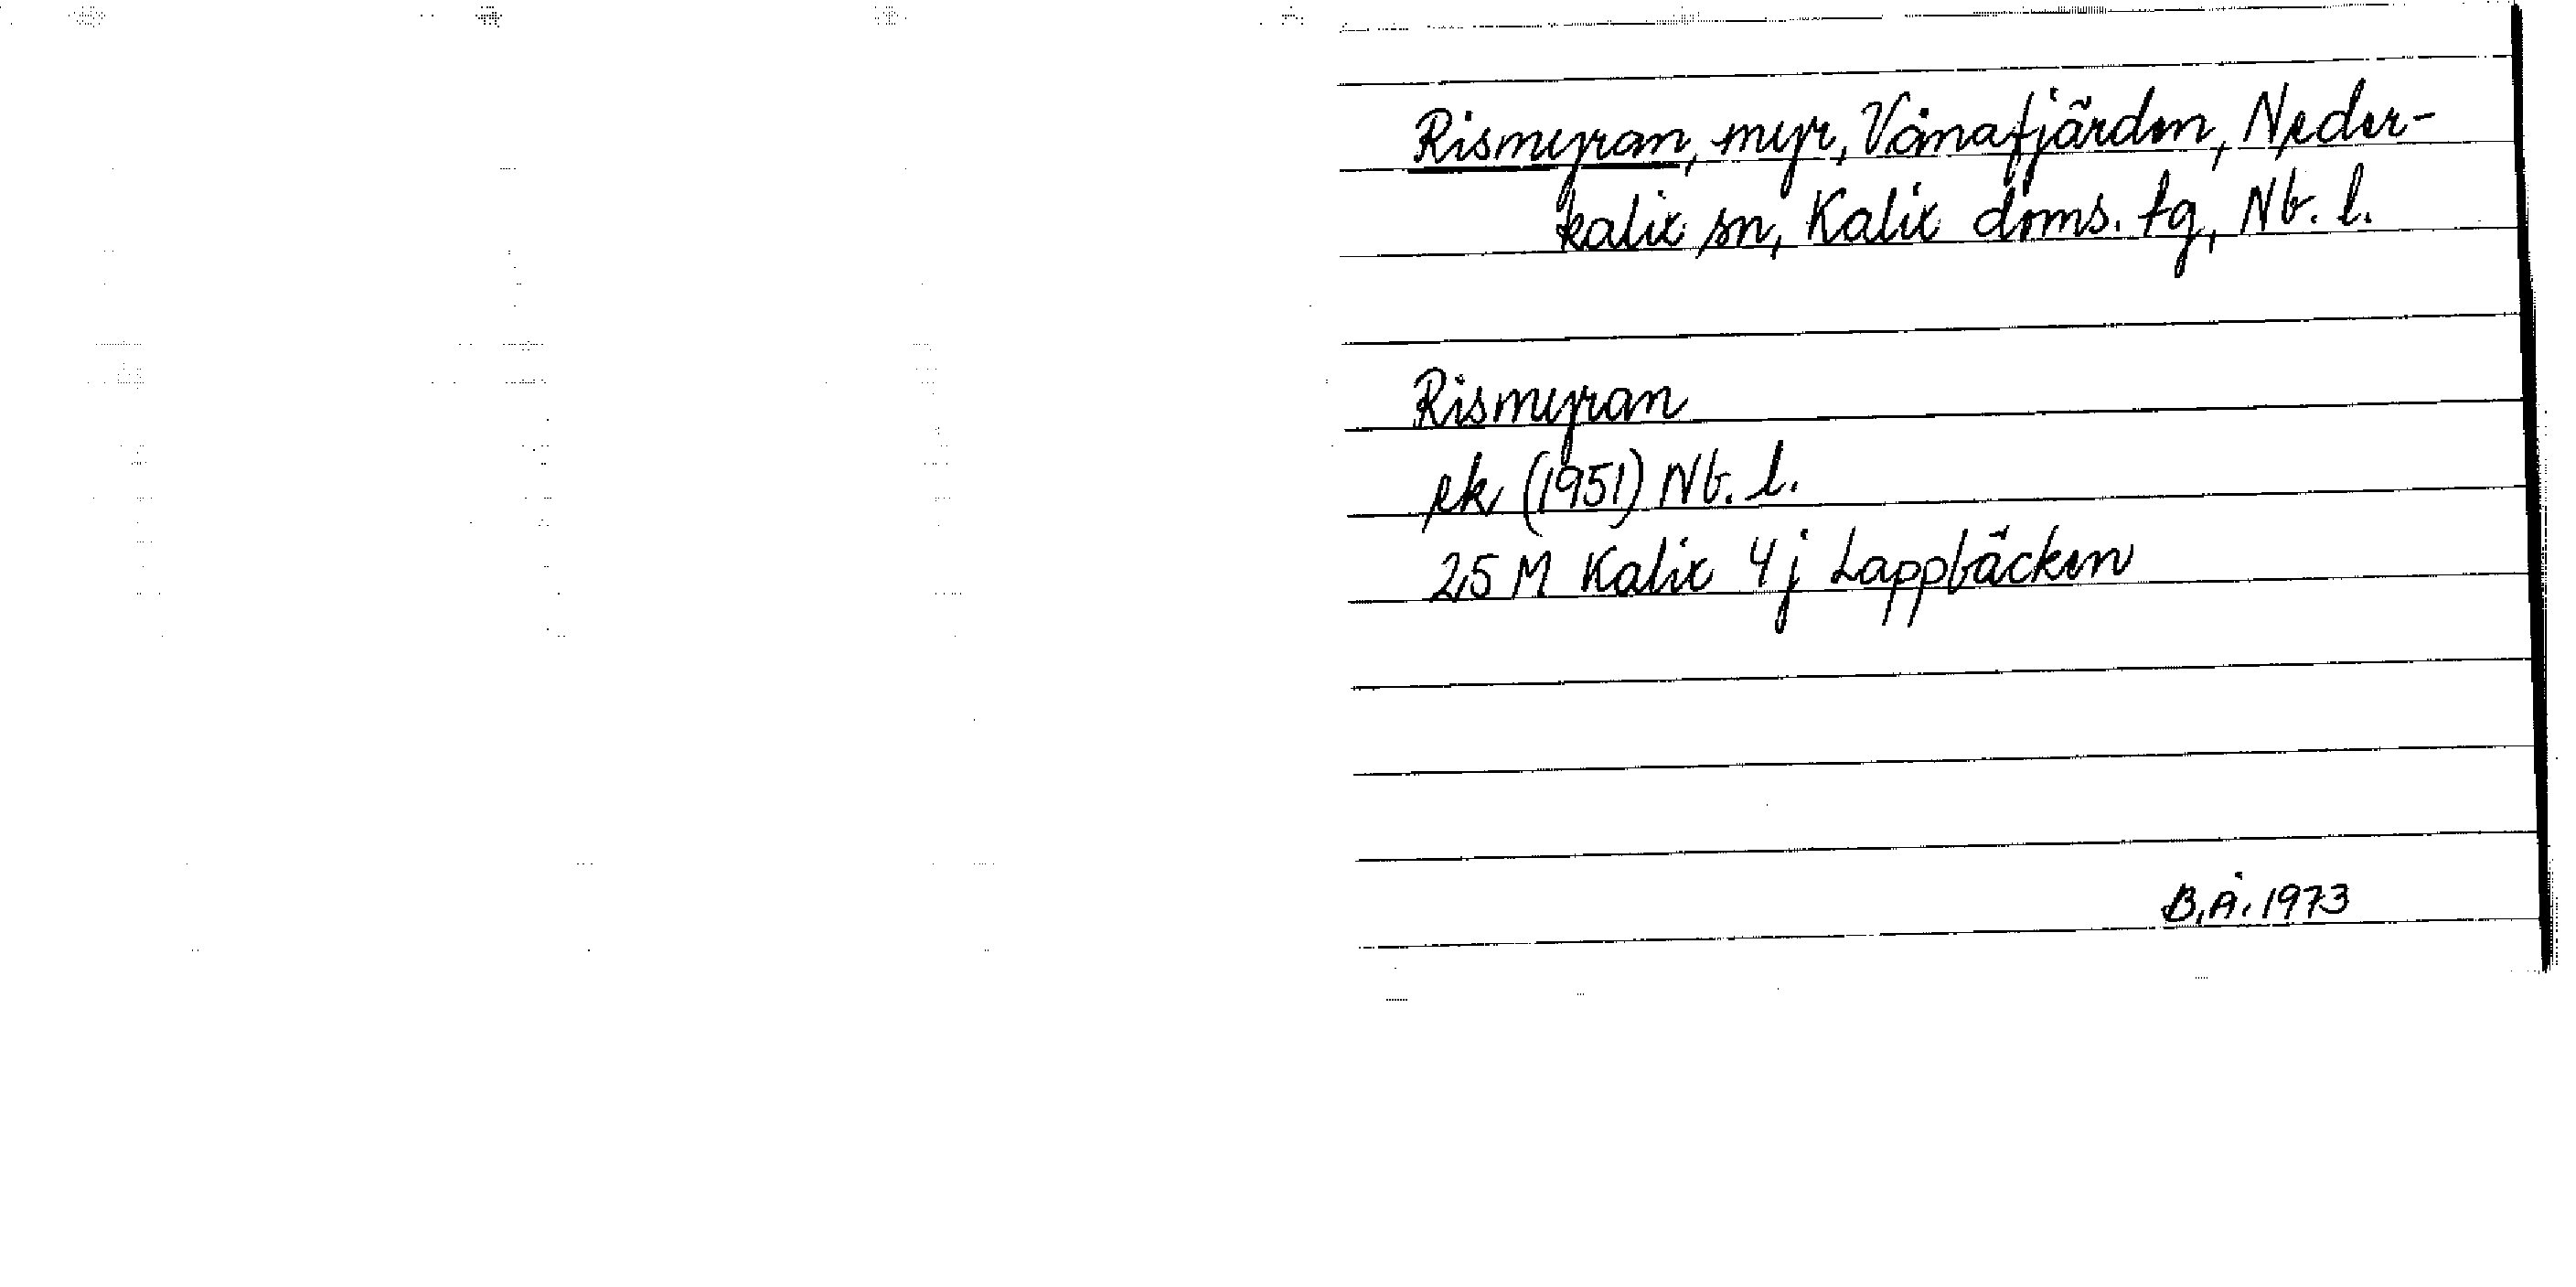 Rismyran, myr, Vånafjärden, Neder-
kalix sn, Kalix doms. tg, Nb. l.
Rismyran
ek (1951) Nb. l.
25 M Kalix 4j Lappbäcken
B.Å. 1973